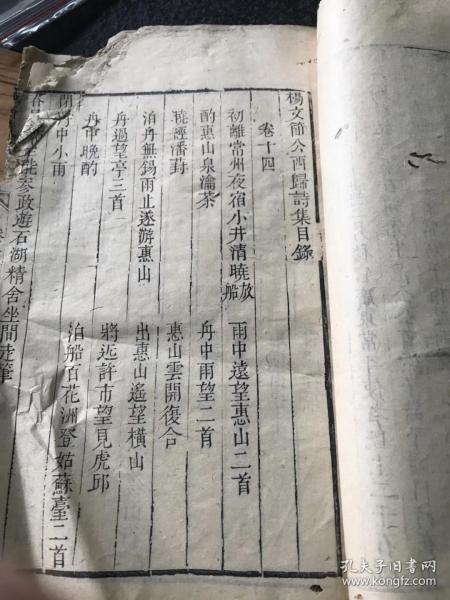 楊文節公西歸詩集目錄
卷十四
初離常州夜宿小井清曉放船 雨中遠望惠山二首
酌惠山泉瀹茶 舟中雨望二首
曉經潘葑 惠山雲開復合
泊舟無錫雨止遂游惠山 出惠山遙望橫山
舟過望亭三首 將近許市望見虎邱
舟中晚酌 泊船百花洲登姑蘇臺二首
中小雨
參政遊石湖精舍坐間走筆
孔夫子旧书网
www.kongfz.com